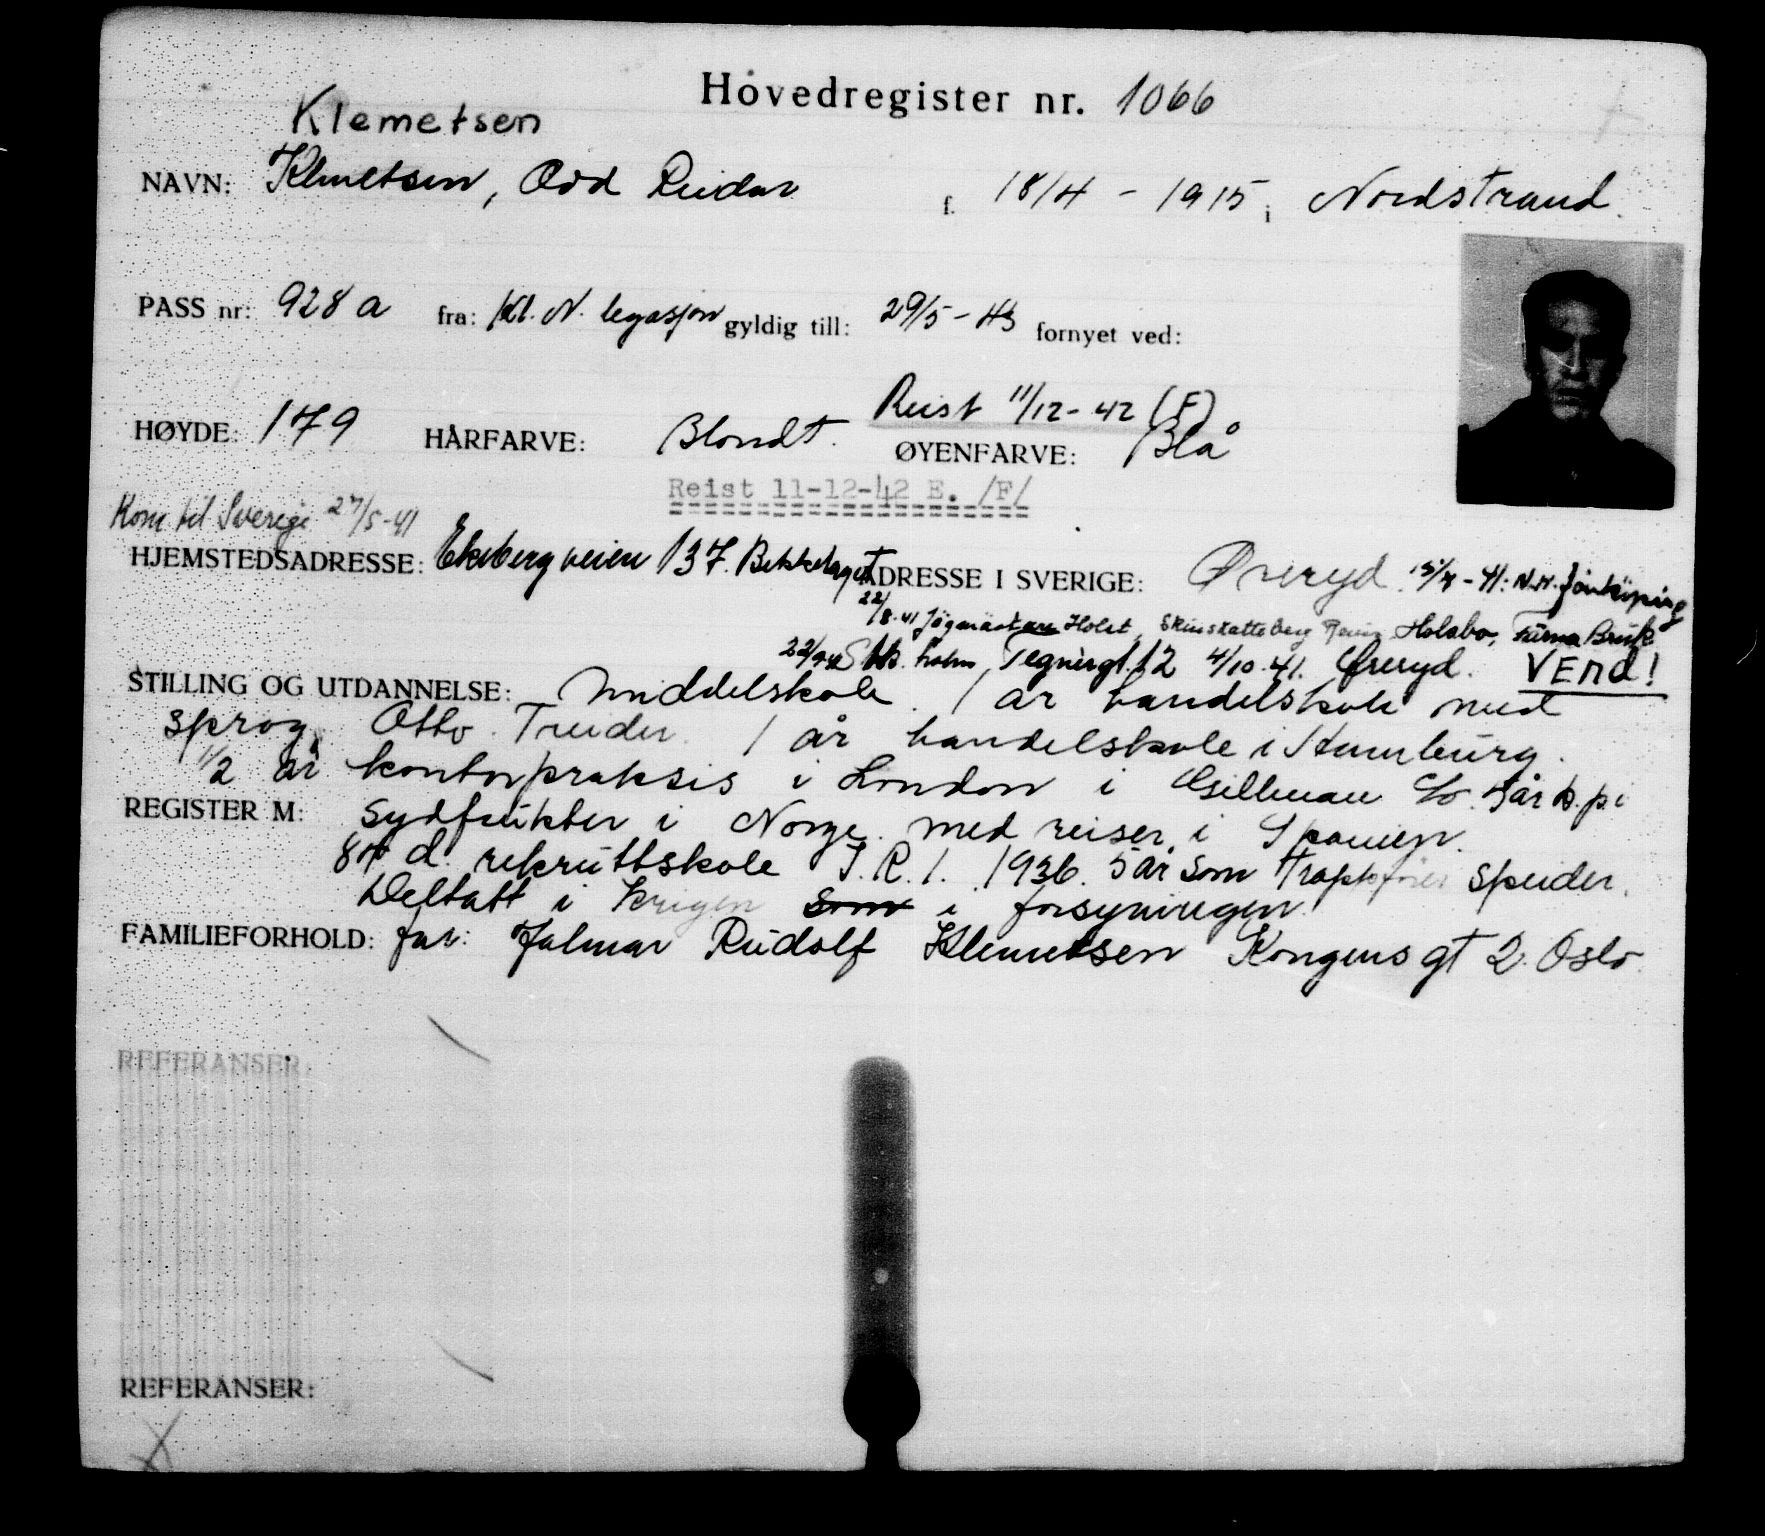 Hovedregister nr. 1066
Klemetsen
NAVN: Klemetsen, Odd Reidar f. 18/4 - 1915 i Nordstrand.
PASS nr: 928 a fra: Kl. N. legasjon gyldig till: 29/5-43 fornyet ved:
Reist 11/12-42 (F)
HØYDE: 179 HÅRFARVE: Blondt. ØYENFARVE: Blå
Reist 11-12-42 E. /F/
Kom til Sverige 27/5-41
HJEMSTEDSADRESSE: Ekebergveien 137. Bekkelaget ADRESSE I SVERIGE: Øreryd. 15/7-41: N.H. Jönköping
22/8-41 Jögmästare Holst, Skinskatteberg Holsbo, Färna Bruk
22/9-41 Stk.holm, Tegnérgt. 12 4/10-41. Øreryd. VEND!
STILLING OG UTDANNELSE: Middelskole. 1 år handelskole med
sprog. Otto Treider. 1 år handelskole i Hamburg.
1/2 år kontorpraksis i London i Gillman Co. 5 år k.p. i
REGISTER M: Sydfrukter i Norge med reiser i Spanien.
84 d. rekruttskole I.R.1. 1936. 5 år som Troppsfører speider.
Deltatt i krigen som i forsyningen.
FAMILIEFORHOLD: far: Hjalmar Rudolf Klemetsen Kongens gt 2. Oslo
REFERANSER:
REFERANSER: